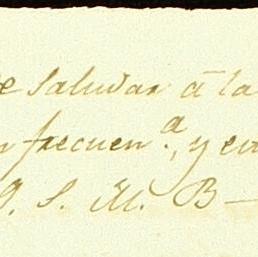 e saludar á la
frecuen.ª, y en
Q. S. M. B